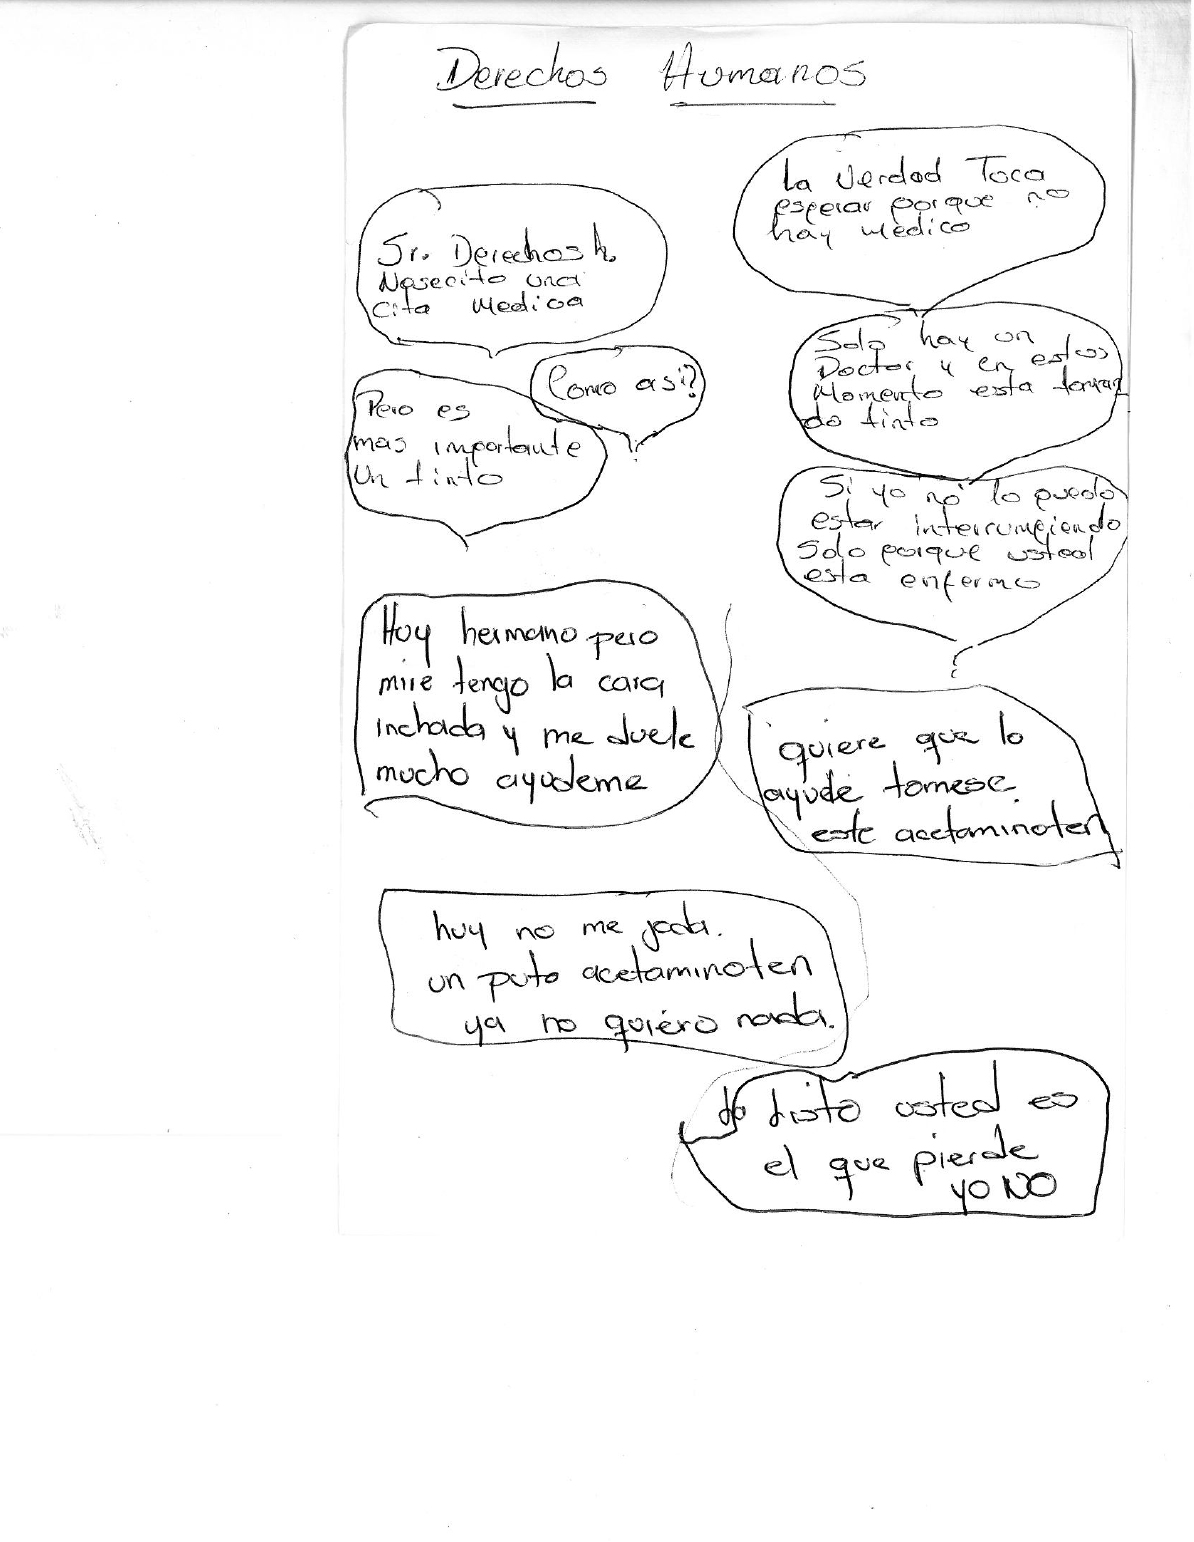 Derechos Humanos
Sr. Derechos h.
Nasecito una
cita medica
La verdad Toca
esperar porque no
hay medico
Como asi?
Solo hay un
Doctor y en estos
Momento esta toman
do tinto
Pero es
mas importante
un tinto
Si yo no lo puedo
estar interrumpiendo
Solo porque usted
esta enfermo
Huy hermano pero
mire tengo la cara
inchada y me duele
mucho ayudeme
quiere que lo
ayude tomese.
este acetaminofen
huy no me joda.
un puto acetaminofen
ya no quiero nada.
listo usted es
el que pierde
yo NO